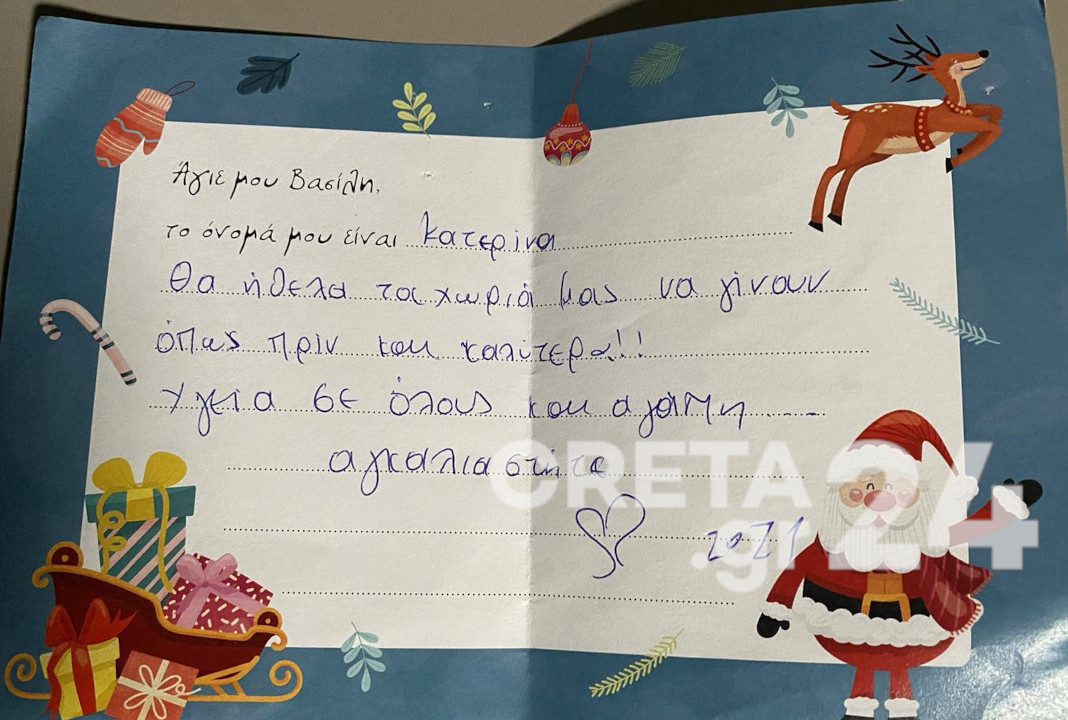 Άγιε μου Βασίλη,
το όνομά μου είναι Κατερίνα
Θα ήθελα τα χωριά μας να γίνουν
όπως πρίν και καλύτερα!!
Υγεία σε όλους και αγάπη
αγκαλιαστήτε
2021
CRETA24
.gr